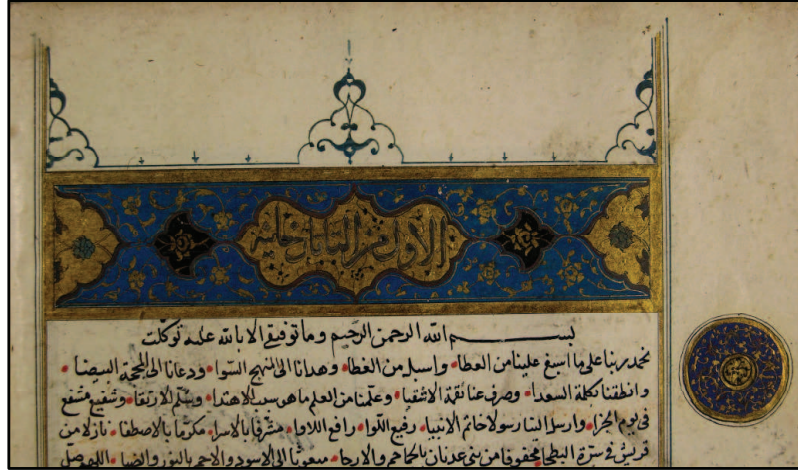 الاول من التاتارخانية
بسم الله الرحمن الرحيم وما توفيقي الا بالله عليه توكلت
نحمد ربنا على ما اسبغ علينا من العطا واسبل من الغطا وهدانا الى النهج السوا ودعانا الى المحجة البيضا
وانطقنا بكلمة السعدا وصرف عنا نقمة الاشقيا وعلمنا من العلم ما هو سبب الاهتدا وسلم الارتقا وشفيع مشفع
فى يوم الجزا وارسل الينا رسولا خاتم الانبيا رفيع اللوا رافع اللاوا مشرفا بالاسرا مكرما بالاصطفا نازلا من
قريش فى سرة البطحا محفوفا من بنى عدنان بالجماجم والارحا مبعوثا الى الاسود والاحمر بالنور والضيا اللهم صل